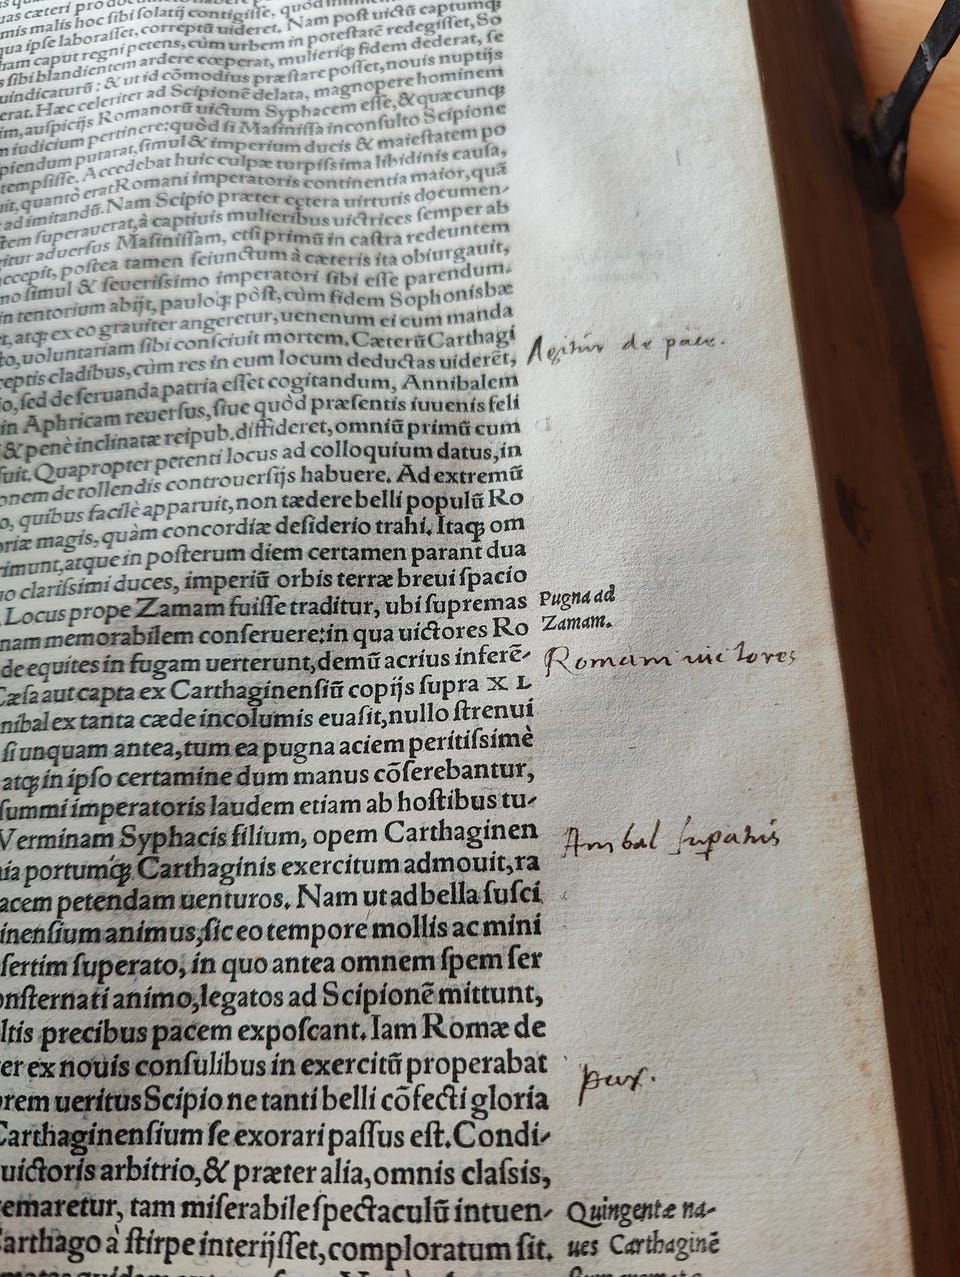 mis malis hoc sibi solatij contigisse,
qua ipse laborasset, correptū uideret. Nam post uictū captumq́;
ham caput regni petens, cùm urbem in potestatē redegisset, So
s sibi blandientem ardere cœperat, mulieriq́; fidem dederat, se
uindicaturū: & ut id cōmodius præstare posset, nouis nuptijs
erat. Hæc celeriter ad Scipionē delata, magnopere hominem
im, auspicijs Romanorū uictum Syphacem esse, & quæcunq́;
m iudicium pertinere: quòd si Masinissa inconsulto Scipione
piendum putarat, simul & imperium ducis & maiestatem po
tempsisse. Accedebat huic culpæ turpissima libidinis causa,
uit, quantò erat Romani imperatoris continentia maior, quā
ad imitandū. Nam Scipio præter cętera uirtutis documen-
tem superauerat, à captiuis mulieribus uictrices semper ab
gitur aduersus Masinissam, etsi primū in castra redeuntem
accepit, postea tamen seiunctum à cæteris ita obiurgauit,
no simul & seuerissimo imperatori sibi esse parendum.
in tentorium abijt, pauloq́; pòst, cùm fidem Sophonisbæ
et, atq; ex eo grauiter angeretur, uenenum ei cum manda
to, uoluntariam sibi consciuit mortem. Cæterū Carthagi
Agitur de pace.
eptis cladibus, cùm res in eum locum deductas uiderēt,
io, sed de seruanda patria esset cogitandum, Annibalem
in Aphricam reuersus, siue quòd præsentis iuuenis feli
& penè inclinatæ reipub. diffideret, omniū primū cum
suit. Quapropter petenti locus ad colloquium datus, in
onem de tollendis controuersijs habuere. Ad extremū
o, quibus facilè apparuit, non tædere belli populū Ro
oriæ magis, quàm concordiæ desiderio trahi. Itaq; om
rimunt, atque in posterum diem certamen parant dua
uo clarissimi duces, imperiū orbis terræ breui spacio
Locus prope Zamam fuisse traditur, ubi supremas
Pugna ad
Zamam.
nam memorabilem conseruere: in qua uictores Ro
Romani uictores
de equites in fugam uerterunt, demū acrius inferē-
Cæsa aut capta ex Carthaginensiū copijs supra XL
nibal ex tanta cæde incolumis euasit, nullo strenui
si unquam antea, tum ea pugna aciem peritissimè
atq; in ipso certamine dum manus cōserebantur,
summi imperatoris laudem etiam ab hostibus tu-
Verminam Syphacis filium, opem Carthaginen
Anibal
nia portumq́; Carthaginis exercitum admouit, ra
acem petendam uenturos. Nam ut ad bella susci
inensium animus, sic eo tempore mollis ac mini
sertim superato, in quo antea omnem spem ser
onsternati animo, legatos ad Scipionē mittunt,
ltis precibus pacem exposcant. Iam Romæ de
er ex nouis consulibus in exercitū properabat
pax.
orem ueritus Scipio ne tanti belli cōfecti gloria
Carthaginensium se exorari passus est. Condi-
uictoris arbitrio, & præter alia, omnis classis,
remaretur, tam miserabile spectaculū intuen-
Quingentæ na-
arthago à stirpe interijsset, comploratum sit.
ues Carthaginē